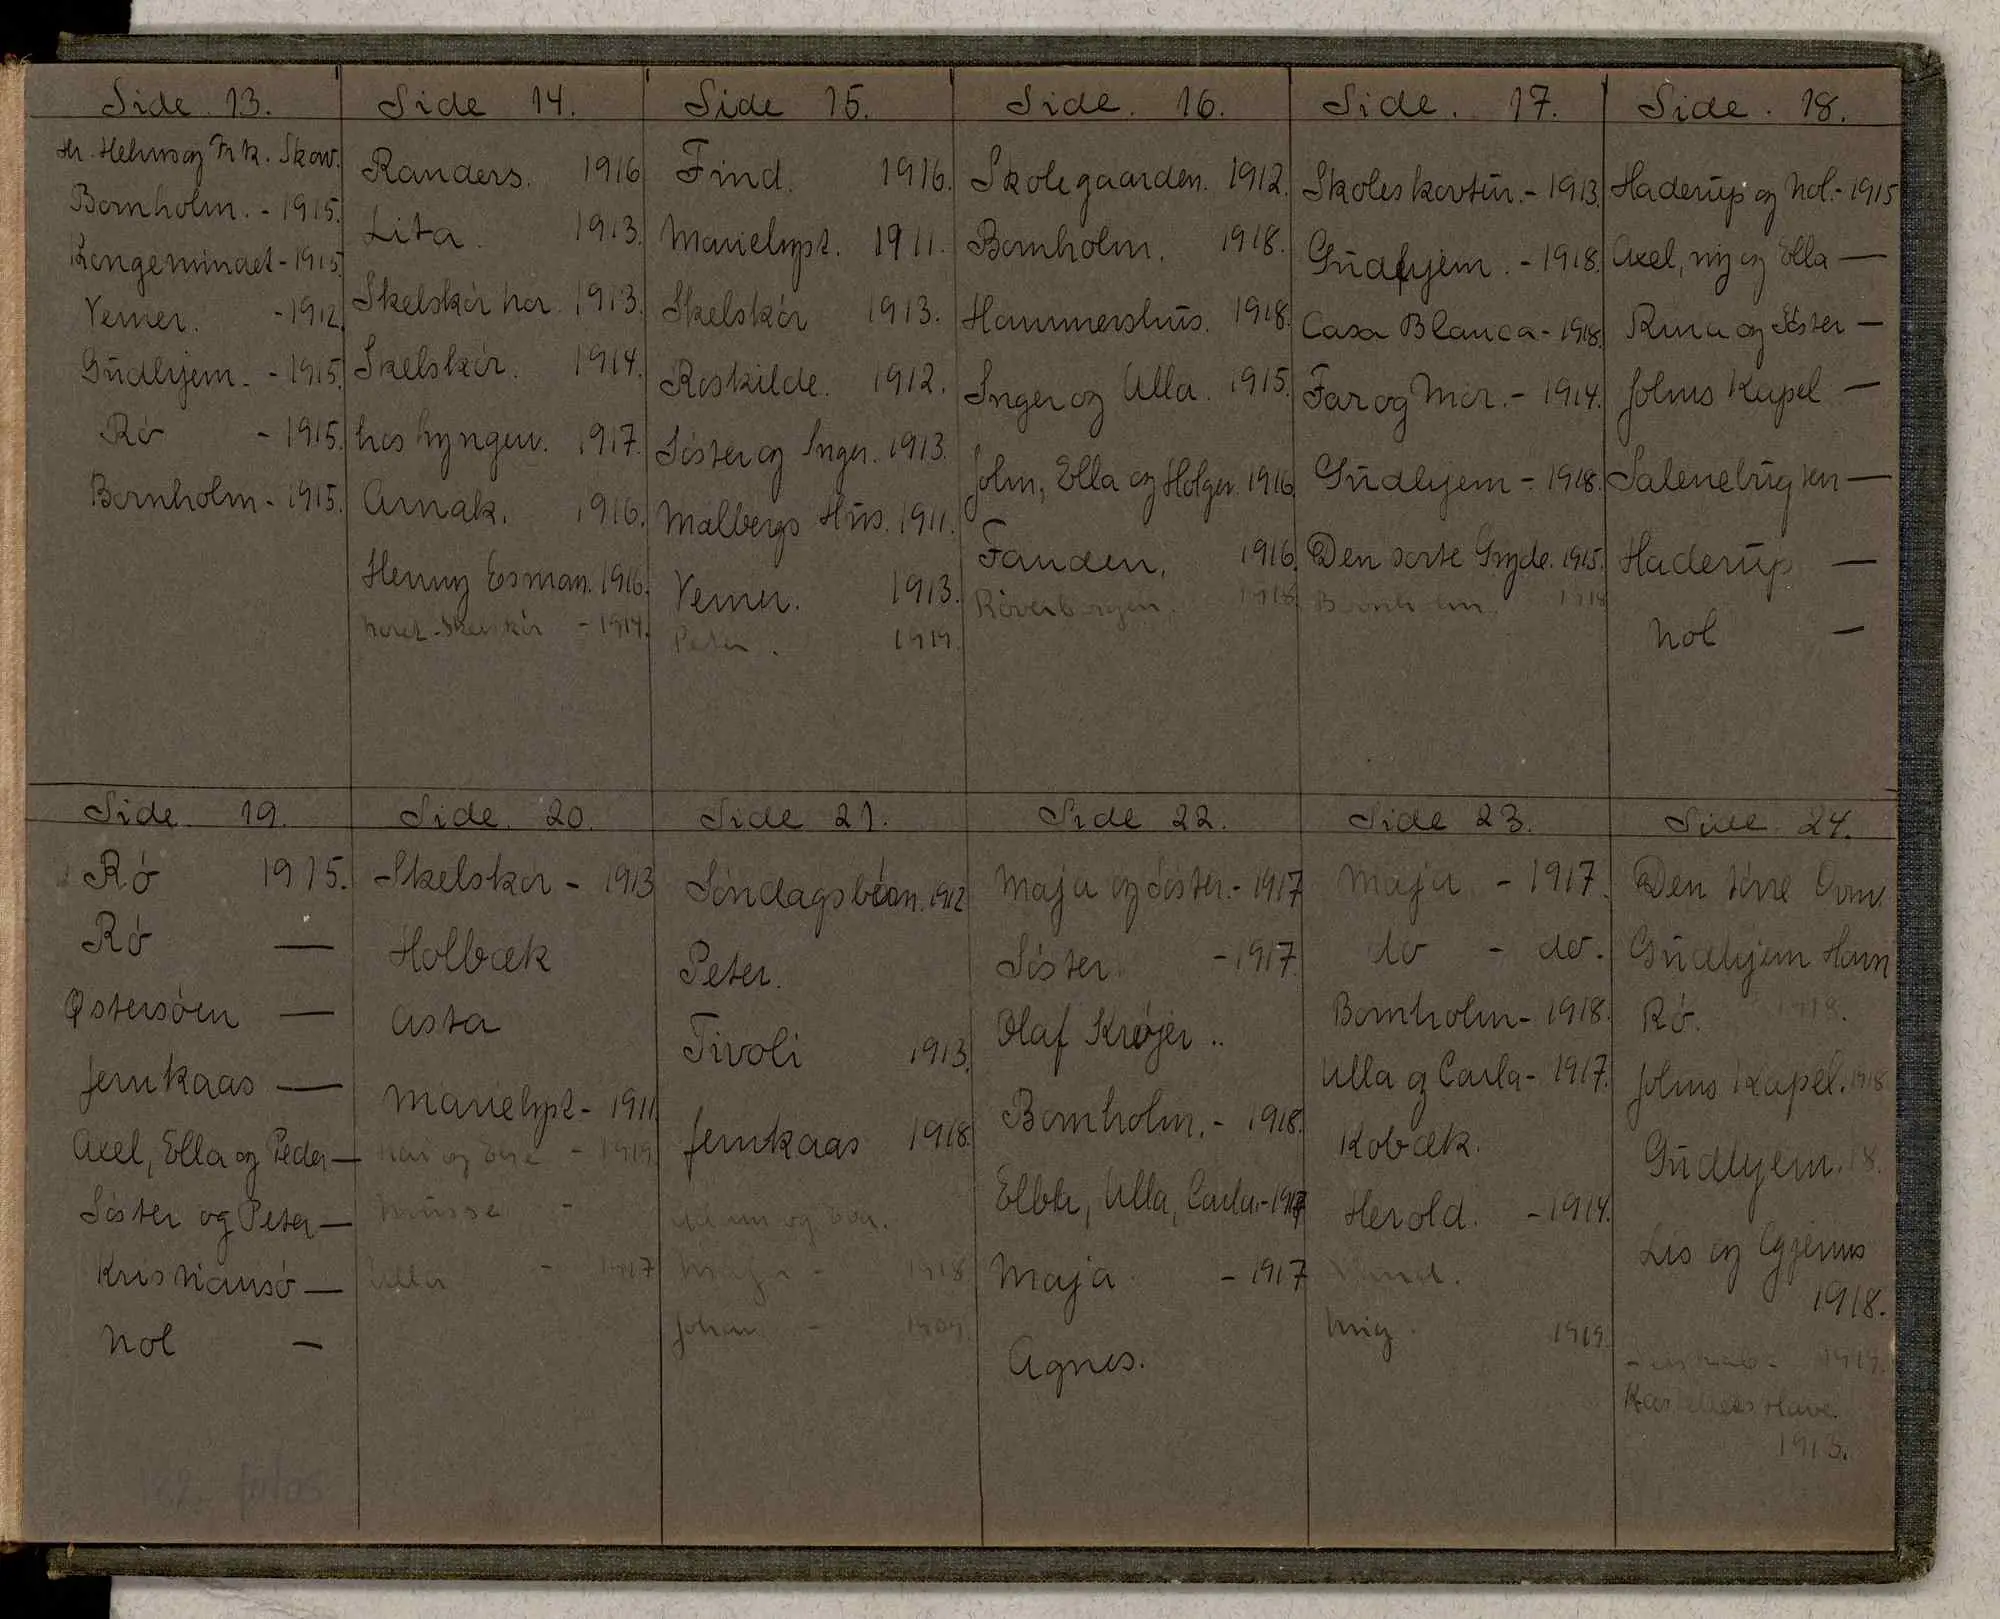 Side 13.
Hr. Helms og Frk. Skov.
Bornholm. - 1915.
Kongemindet - 1915.
Verner. - 1912.
Gudhjem. - 1915.
Rö - 1915.
Bornholm - 1915.
Side 14.
Randers. 1916
Lita. 1913.
Skelskör Nor. 1913.
Skelskör. 1914.
hos Lyngen. 1917.
Arnak. 1916.
Henny Esman. 1916.
Noret - Skelskör - 1914.
Side 15.
Find. 1916.
Marielyst. 1911.
Skelskör 1913.
Roskilde. 1912.
Söster og Inger. 1913.
Malbergs Hus. 1911.
Verner. 1913.
Peter. 1919.
Side. 16.
Skolegaarden. 1912.
Bornholm. 1918.
Hammershus. 1918.
Inger og Ulla. 1915.
John, Ella og Holger. 1916
Fanden. 1916.
Röverborgen. 1918.
Side. 17.
Skoleskovtur. - 1913.
Gudhjem. - 1918.
Casa Blanca - 1918.
Far og Mor. - 1914.
Gudhjem - 1918.
Den sorte Gryde. 1915.
Bornholm. 1918
Side. 18.
Haderup og Nol. - 1915
Axel, mig og Ella —
Runa og Söster —
Johns Kapel —
Salenebugten —
Haderup —
Nol —
Side 19.
Rö 1915.
Rö —
Østersöen —
Jernkaas —
Axel, Ella og Peder —
Söster og Peter —
Kristiansö —
Nol —
182 fotos
Side. 20.
Skelskör - 1913
Holbæk
Asta
Marielyst - 1911.
Kai og Else - 1919.
Musse -
Ulla - 1917
Side 21.
Söndagsbörn. 1912
Peter.
Tivoli 1913.
Jernkaas 1918.
Adam og Eva.
Maja - 1918
Johan - 1909.
Side 22.
Maja og Söster. - 1917
Söster - 1917.
Olaf Krøjer ..
Bornholm. - 1918.
Ebba, Ulla, Carla. - 1917
Maja - 1917
Agnes.
Side 23.
Maja - 1917.
do - do.
Bornholm - 1918.
Ulla og Carla - 1917.
Kobæk.
Herold. - 1914.
Mig. 1919.
Side 24.
Den törre Ovn.
Gudhjem Havn
Rö. 1918.
Johns Kapel. 1918
Gudhjem. 18.
Lis og
1918.
1919.
Have.
1913.